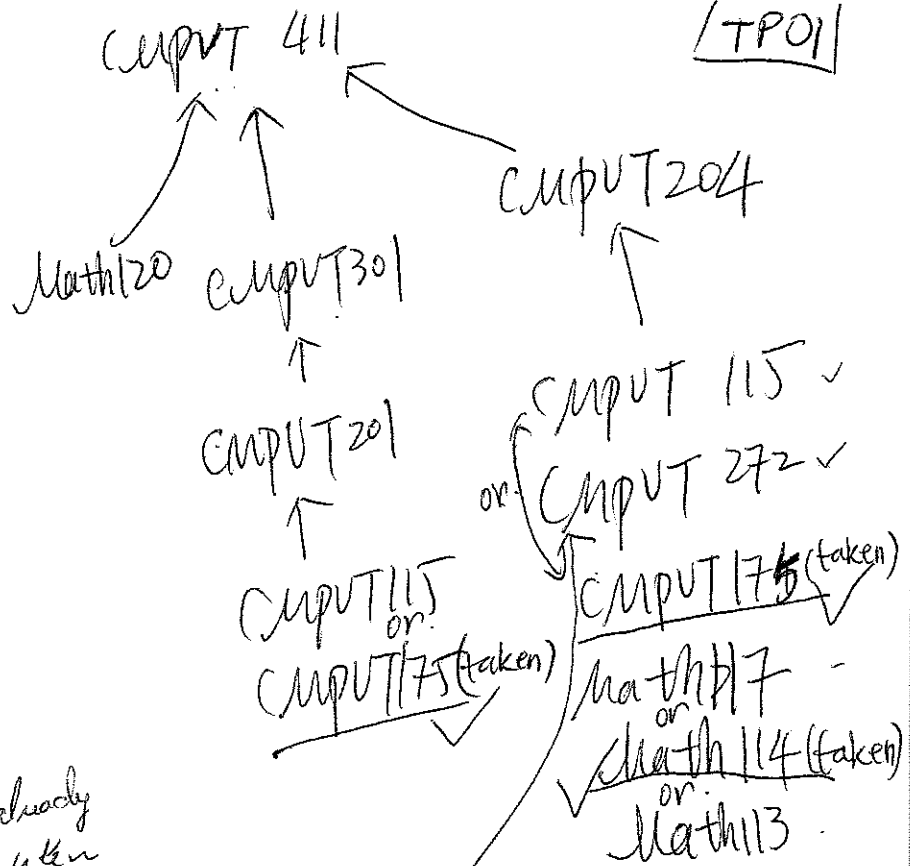 CMPUT 411
TP01
CMPUT 204
Math120
CMPUT301
CMPUT 115
CMPUT201
or.
CMPUT 272
CMPUT175(taken)
CMPUT115
or.
CMPUT175(taken)
Math117
or
Math 114(taken)
or.
Math113
already
taken